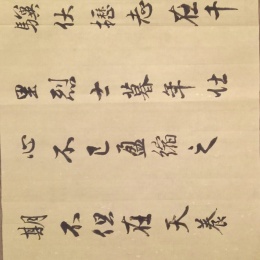 驥伏櫪志在千
里烈士暮年壮
心不已盈縮之
期不但在天養